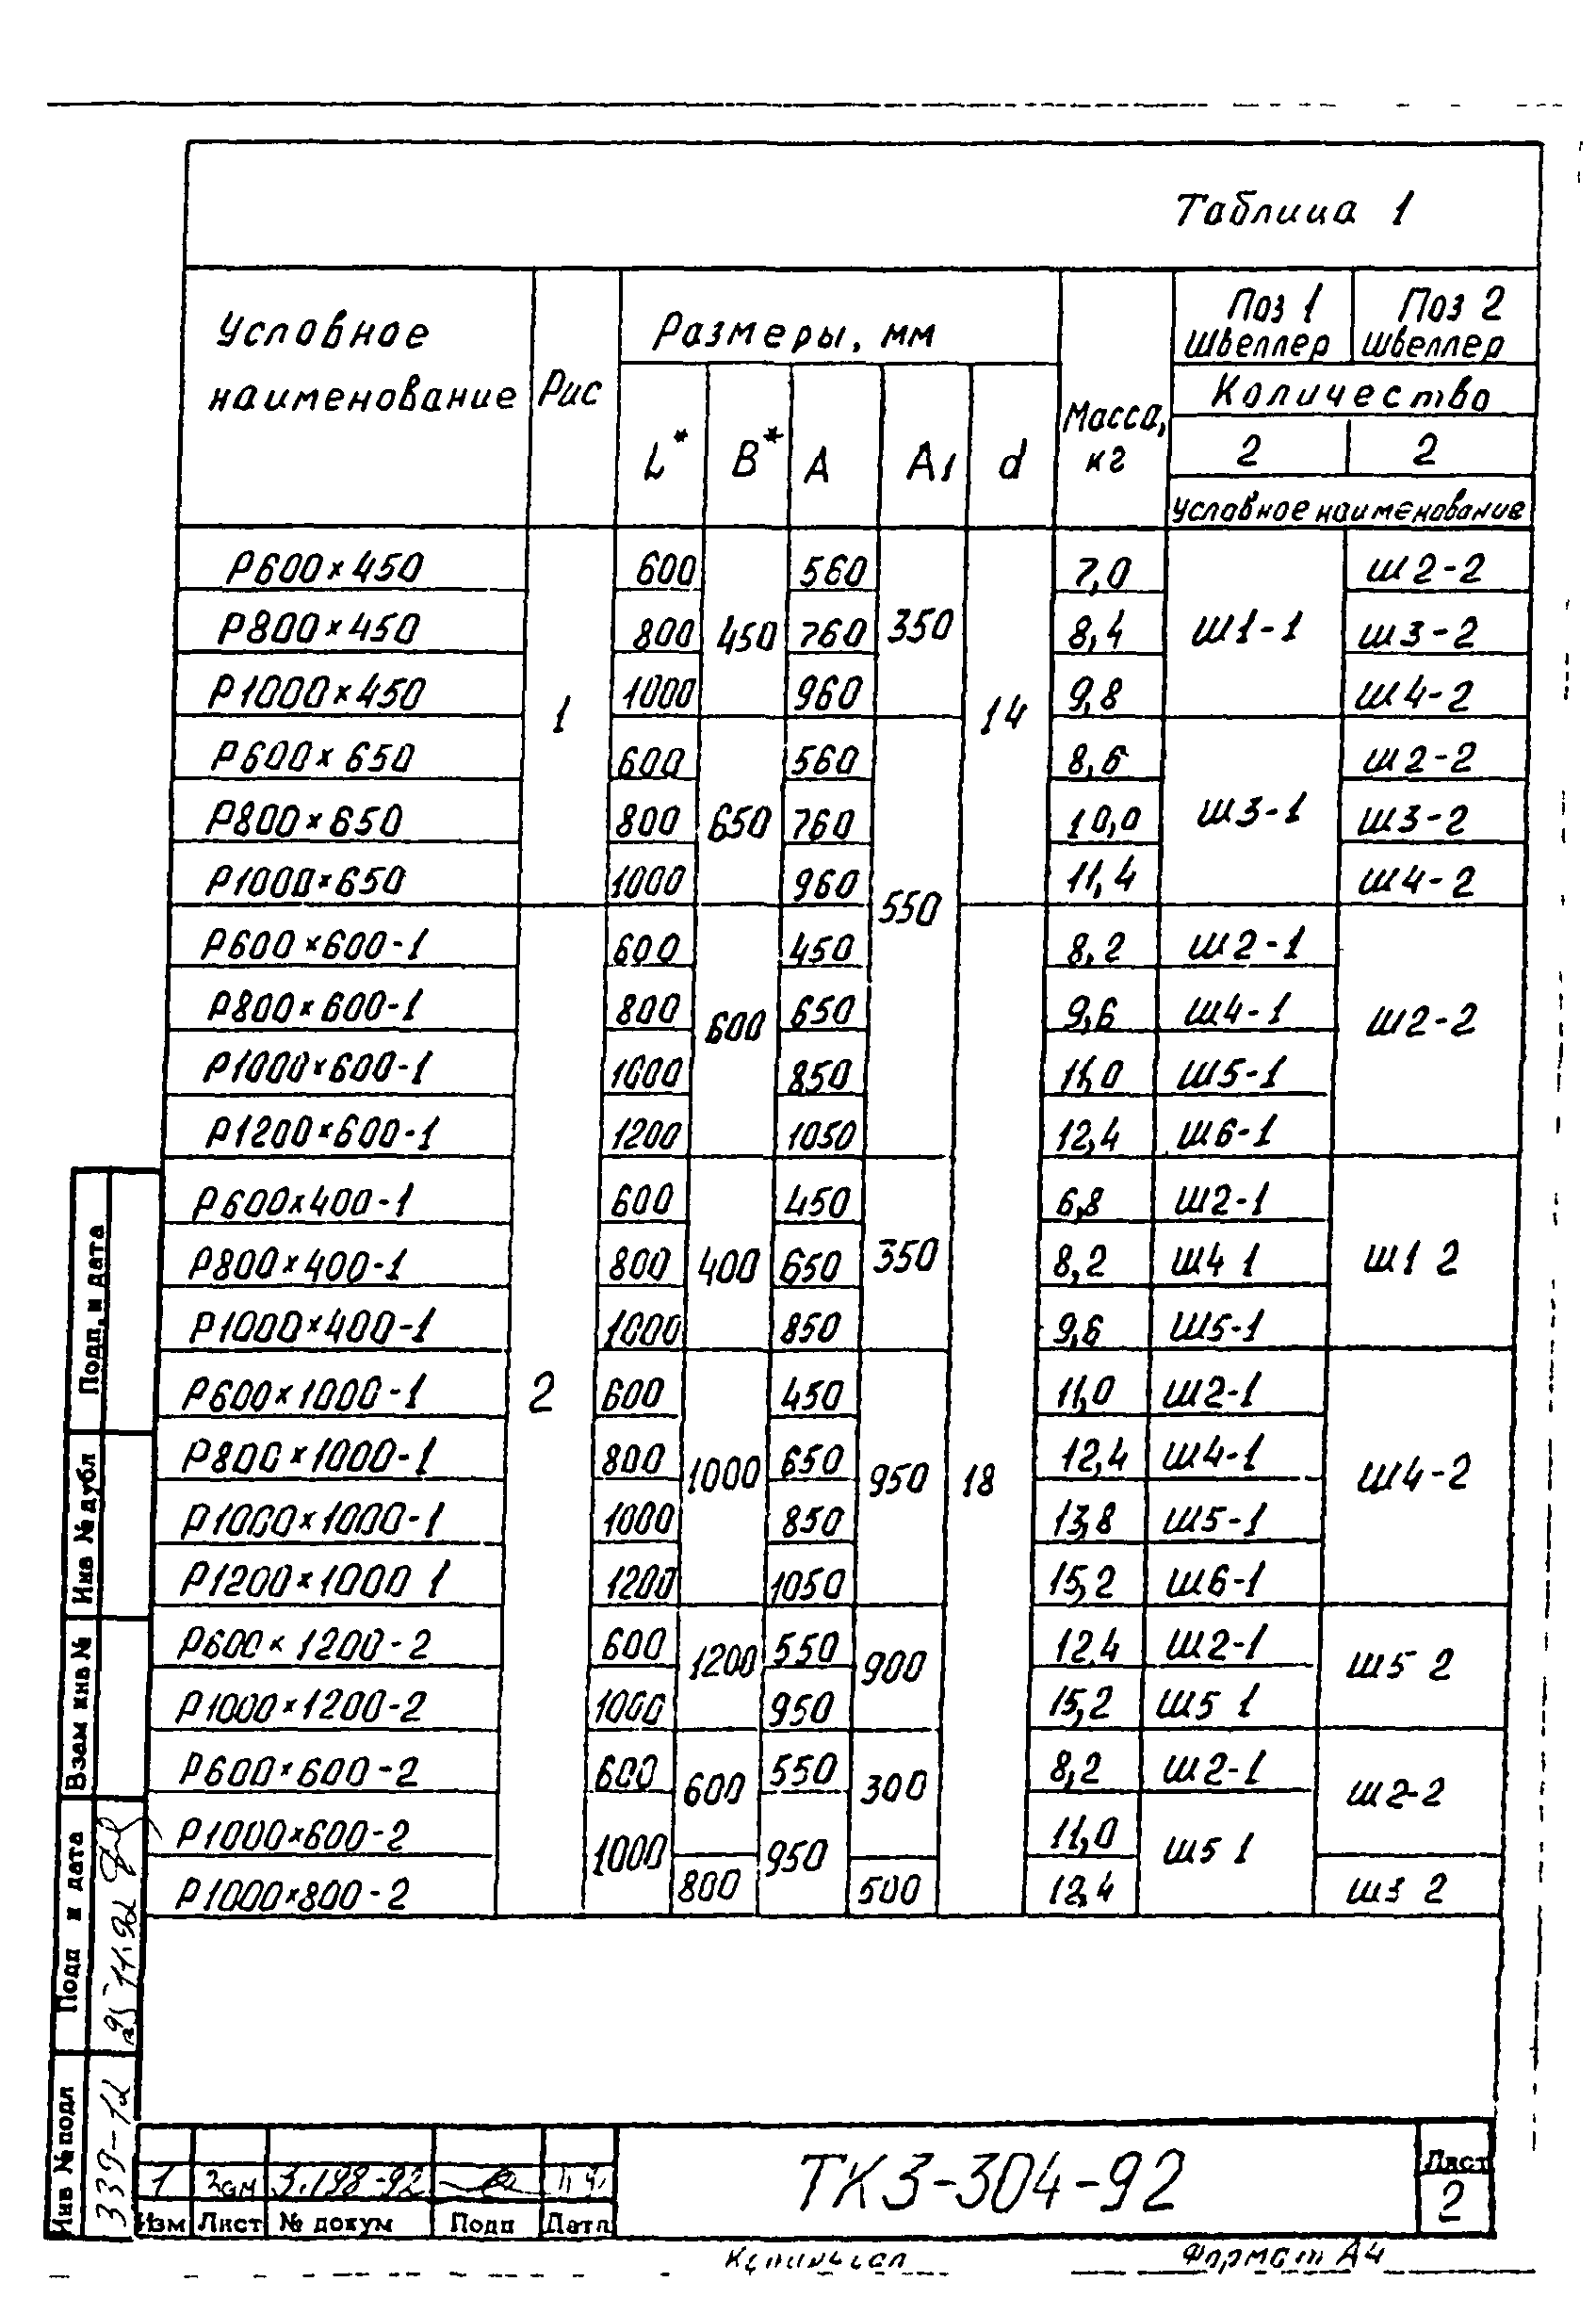 Таблица 1
Условное наименование Рис Размеры, мм Масса, кг Поз 1 Швеллер Поз 2 Швеллер
L* B* A A1 d Количество
2 2
Условное наименование
Р600×450 1 600 450 560 350 14 7,0 Ш1-1 Ш2-2
Р800×450 800 760 8,4 Ш3-2
Р1000×450 1000 960 9,8 Ш4-2
Р600×650 600 650 560 550 8,6 Ш3-1 Ш2-2
Р800×650 800 760 10,0 Ш3-2
Р1000×650 1000 960 11,4 Ш4-2
Р600×600-1 2 600 600 450 18 8,2 Ш2-1 Ш2-2
Р800×600-1 800 650 9,6 Ш4-1
Р1000×600-1 1000 850 11,0 Ш5-1
Р1200×600-1 1200 1050 12,4 Ш6-1
Р600×400-1 600 400 450 350 6,8 Ш2-1 Ш1 2
Р800×400-1 800 650 8,2 Ш4 1
Р1000×400-1 1000 850 9,6 Ш5-1
Р600×1000-1 600 1000 450 950 11,0 Ш2-1 Ш4-2
Р800×1000-1 800 650 12,4 Ш4-1
Р1000×1000-1 1000 850 13,8 Ш5-1
Р1200×1000 1 1200 1050 15,2 Ш6-1
Р600×1200-2 600 1200 550 900 12,4 Ш2-1 Ш5 2
Р1000×1200-2 1000 950 15,2 Ш5 1
Р600×600-2 600 600 550 300 8,2 Ш2-1 Ш2-2
Р1000×600-2 1000 950 11,0 Ш5 1
Р1000×800-2 800 500 12,4 Ш3 2
Подп. и дата
Инв № дубл
Взам инв №
Подп и дата
Инв № подл
1 Зам 3.198-92
Изм Лист № докум Подп Дата
ТК3-304-92
Лист
2
Формат А4